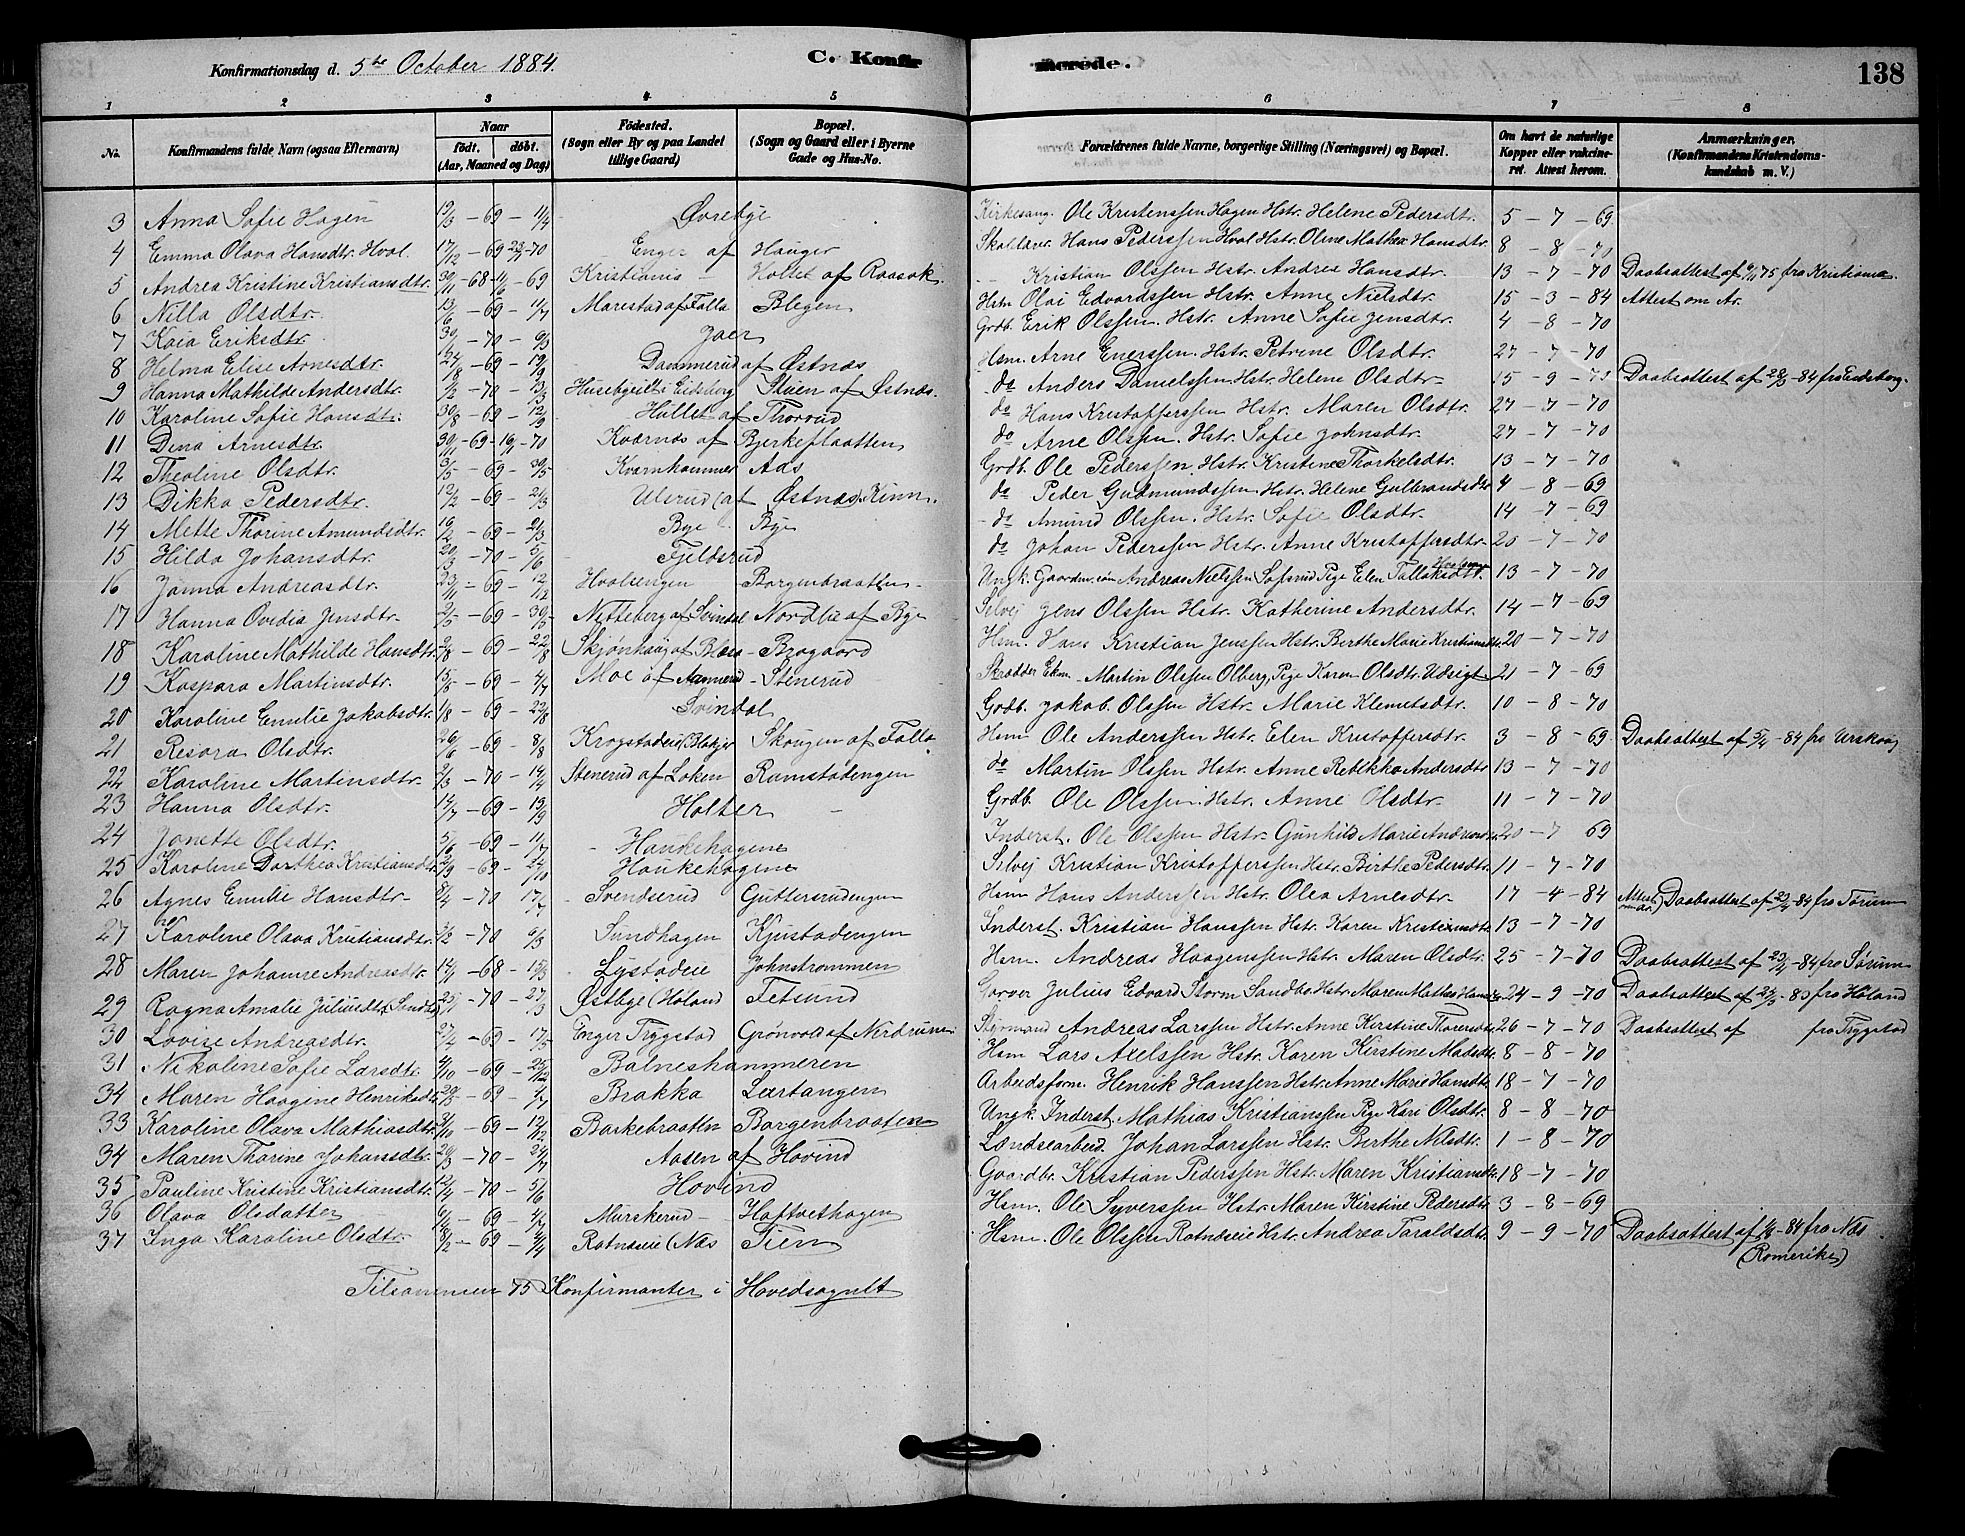 Konfirmationsdag d. 5te October 1884. C. Konfirmerede. 138
1 2 3 4 5 6 7 8
No. Konfirmandens fulde Navn (ogsaa Efternavn) Naar født. døbt. (Aar, Maaned og Dag) Födested. (Sogn eller By og paa Landet tillige Gaard) Bopæl. (Sogn og Gaard eller i Byerne Gade og Hus-No. Forældrenes fulde Navne, borgerlige Stilling (Næringsvei) og Bopæl. Om havt de naturlige Kopper eller vakcineret. Attest herom. Anmærkninger. (Konfirmandens Kristendomskundskab m. V.)
3 Anna Sofie Hagen 19/3 - 69 - 11/4 Øvrebye Kirkesang. Ole Kristenssen Hagen Hstr. Helene Pedersdtr. 5 - 7 - 69
4 Emma Olava Hansdtr. Hval. 17/12 - 69 - 70 Enger af Hauger Hans Pederssen Hval Hstr. Oline Mathea Hansdtr. 8 - 8 - 70
5 Andrea Kristine Kristiansdtr. 30/11 - 68 - 69 Kristiania Holtet af Raasok Kristian Olssen Hstr. Andrea Hansdtr. 13 - 7 - 70 Daabsattest af 75 fra Kristiania
6 Nilla Olsdtr. 13/6 - 69 - 11/7 Marestad af Falla Blegen Hsm Edvardssen Hstr. Anne Nielsdtr. 15 - 3 - 84 Attest om Ar.
7 Kaia Eriksdtr. - 70 - 9/3 Jaer Grdb. Erik Olssen. Hstr. Anne Sofie Jensdtr. 4 - 8 - 70
8 Helma Elise Arnesdtr. 24/8 - 69 - 19/9 Dammerud af Østnæs Hsm. Arne Enerssen. Hstr. Petrine Olsdtr. 27 - 7 - 70
9 Hanna Mathilde Andersdtr. - 70 - 13/3 Eidsberg Stuen af Østnæs. do Anders Danielssen Hstr. Helene Olsdtr 15 - 9 - Daabsattest af 28/3 - 84 fra Eidsberg.
10 Karoline Sofie Hansdtr. 30/8 - 69 - 12/9 Hallst af Thorrud do Hans Kristofferssen Hstr. Maren Olsdtr. 27 - 7 - 70
11 Dina Arnesdtr. 30/11 - 69 - 16/1 - 70 Kværnæs af Bjerkeflaatten do Arne Olssen. Hstr. Sofie Johnsdtr. 27 - 7 - 70
12 Theoline Olsdtr. - 69 - 30/5 Kvernhammer Aas Grdb. Ole Pederssen. Hstr. Kristine Thorkelsdtr. 13 - 7 - 70
13 Dikka Pedersdtr. 12/2 - 69 - 21/3 Ulsrud (af Østnæs) Kinn. do Peder Gudmundssen Hstr. Helene Gulbrandsdtr 4 - 8 - 69
14 Mette Thorine Amundsdtr. 19/2 - 69 - 21/3 Bye Bye do Amund Olssen. Hstr. Sofie Olsdtr. 14 7 - 69
15 Hilda Johansdtr. 20/3 - 70 - 5/6 Fjeldsrud do Johan Pederssen Hstr. Anne Kristoffersdtr. 20 - 7 - 70
16 Janna Andreasdtr. 23/11 - 69 - 12/12 Hvalsengen Borgenbraatten Ungk. Andreas Nielssen Pige Elen Tallaksdtr. 13 - 7 - 70
17 Hanna Ovidia Jensdtr. 2/5 - 69 - 30/5 Netteberg af Svindal Nordlie af Bye Selvej Jens Olssen Hstr. Katherine Andersdtr. 14 - 7 - 69
18 Karoline Mathilde Hansdtr. - 69 - 22/8 Skjønhaug af Brogaard Hsm. Hans Kristian Jenssen Hstr. Berthe Marie Kristiansdtr 20 - 7 - 70
19 Kaspara Martinsdtr. - 69 - 4/7 Moe af Aamerud Stenerud Skrædder Martin Olssen Olberg, Pige Karen Olsdtr. Udsigt 21 - 7 - 69
20 Karoline Emilie Jakobsdtr. 1/8 - 69 - 22/8 Svindal Grdb. Jakob. Olssen Hstr. Marie Klemetsdtr. 10 - 8 - 70
21 Resara Olsdtr. 26/6 - 69 - 8/8 Krogstadeie (Blakjer Skougen af Falla. Hsm Ole Anderssen Hstr. Elen Kristoffersdtr. 3 - 8 - 69 Daabsattest af 5/4 - 84 fra Urskoug
22 Karoline Martinsdtr. - 70 - 14/4 Stenerud af Løken Ramstadengen do Martin Olssen Hstr. Anne Rebekka Andersdtr 13 - 7 - 70
23 Hanna Olsdtr. 14/7 - 69 - 19/9 Holter Grdb. Ole Olssen. Hstr. Anne Olsdtr. 11 - 7 - 70
24 Janette Olsdtr. 5/6 - 69 - 11/7 Haukehagene Inderst. Ole Olssen Hstr. Gunhild Marie 20 - 7 69
25 Karoline Dorthea Kristiansdtr - 69 - 24/10 Haukehagene Selvej Kristian Kristofferssen Hstr. Birthe Pedersdtr. 11 - 7 - 70
26 Agnes Emilie Hansdtr. 8/4 - 70 17/7 Svendserud Guttersrudengen Hsm Hans Anderssen Hstr. Olea Arnesdtr. 17 - 4 - 84 Attest om ar.) Daabsattest af - 84 fra Sørum
27 Karoline Olava Kristiansdtr. - 70 6/3 Sundhagen Kjustadengen Inderst. Kristian Hanssen Hstr. Karen Kristiansdtr 13 - 7 - 70
28 Maren Johanne Andreasdtr. 14/11 - 68 - 15/3 Lystadeie Johnstrommen Hsm. Andreas Haagenssen Hstr. Maren Olsdtr. 25 - 7 - 70 Daabsattest af - 84 fra Sørum
29 Ragna Amalie Juliusdtr. - 70 - 27/3 Østbye (Høland Fetsund Garver Julius Edvard Storm Sandbo Hstr. Maren Mathea 24 - 9 - 70 Daabsattest af - 83 fra Høland
30 Lovise Andreasdtr. 27/4 - 69 - 17/5 Enger Trygstad Grønvold af Nerdrum Styrmand Andreas Larssen Hstr. Anne Kirstine Thoresdtr 26 - 7 - 70 Daabsattest af fra Trygstad
31 Nikoline Sofie Larsdtr. 4/10 - 69 - 25/12 Balneshammeren Hsm Lars Axelssen Hstr. Karen Kirstine Madsdtr. 8 - 8 - 70
34 Maren Haagine Henriksdtr. - 69 - Brakka Leertangen Arbeidsform. Henrik Hanssen Hstr. Anne Marie Hansdtr. 18 - 7 - 70
33 Karoline Olava Mathiasdtr. - 69 - 12/12 Barkebraatten Borgenbraaten Ungk. Inderst. Mathias Kristianssen Pige Kari Olsdtr. 8 - 8 - 70
34 Maren Thorine Johansdtr. - 70 - 24/7 Aasen af Hovind Johan Larssen Hstr. Berthe Nilsdtr. 1 - 8 - 70
35 Pauline Kristine Kristiansdtr. 12/4 - 70 - 5/6 Hovind Gaardbr. Kristian Pederssen Hstr. Maren Kristiansdtr 18 - 7 - 70
36 Olava Olsdatter - 69 - 4/7 Murskerud Haftvethagen Hsm. Ole Syverssen Hstr. Maren Kirstine Pedersdtr. 3 - 8 - 69
37 Inga Karoline Olsdtr. 8/2 - 69 - 4/4 Ratnæseie (Næs Tien Hsm. Ole Olssen Ratnæseie Hstr. Andrea Taraldsdtr. 9 - 9 - 70 Daabsattest af - 84 fra Næs
(Romerike)
Tilsammen 75 Konfirmanter i Hovedsognet